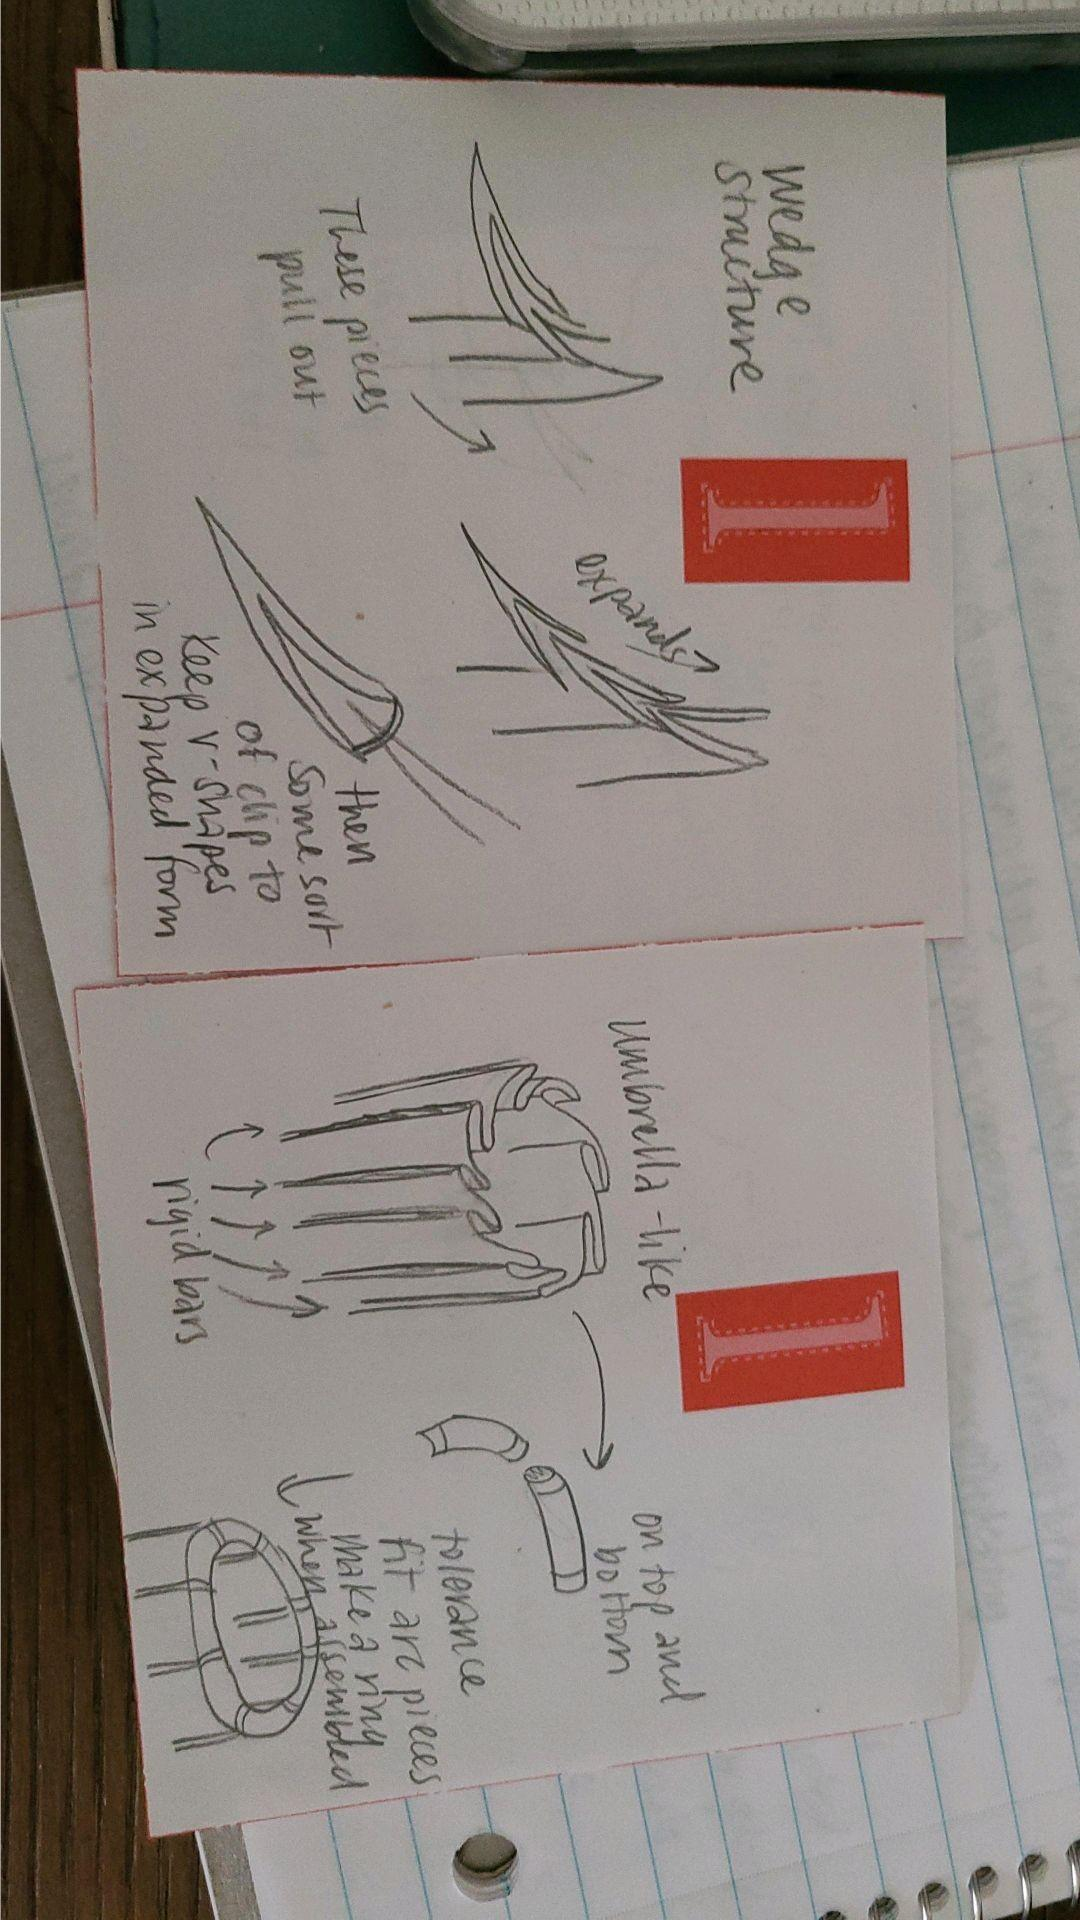 Wedge
structure
I
These pieces
pull out
expands
then
some sort
of clip to
keep v-shapes
in expanded form
Umbrella-like
I
rigid bars
on top and
bottom
tolerance
fit arc pieces
make a ring
when assembled